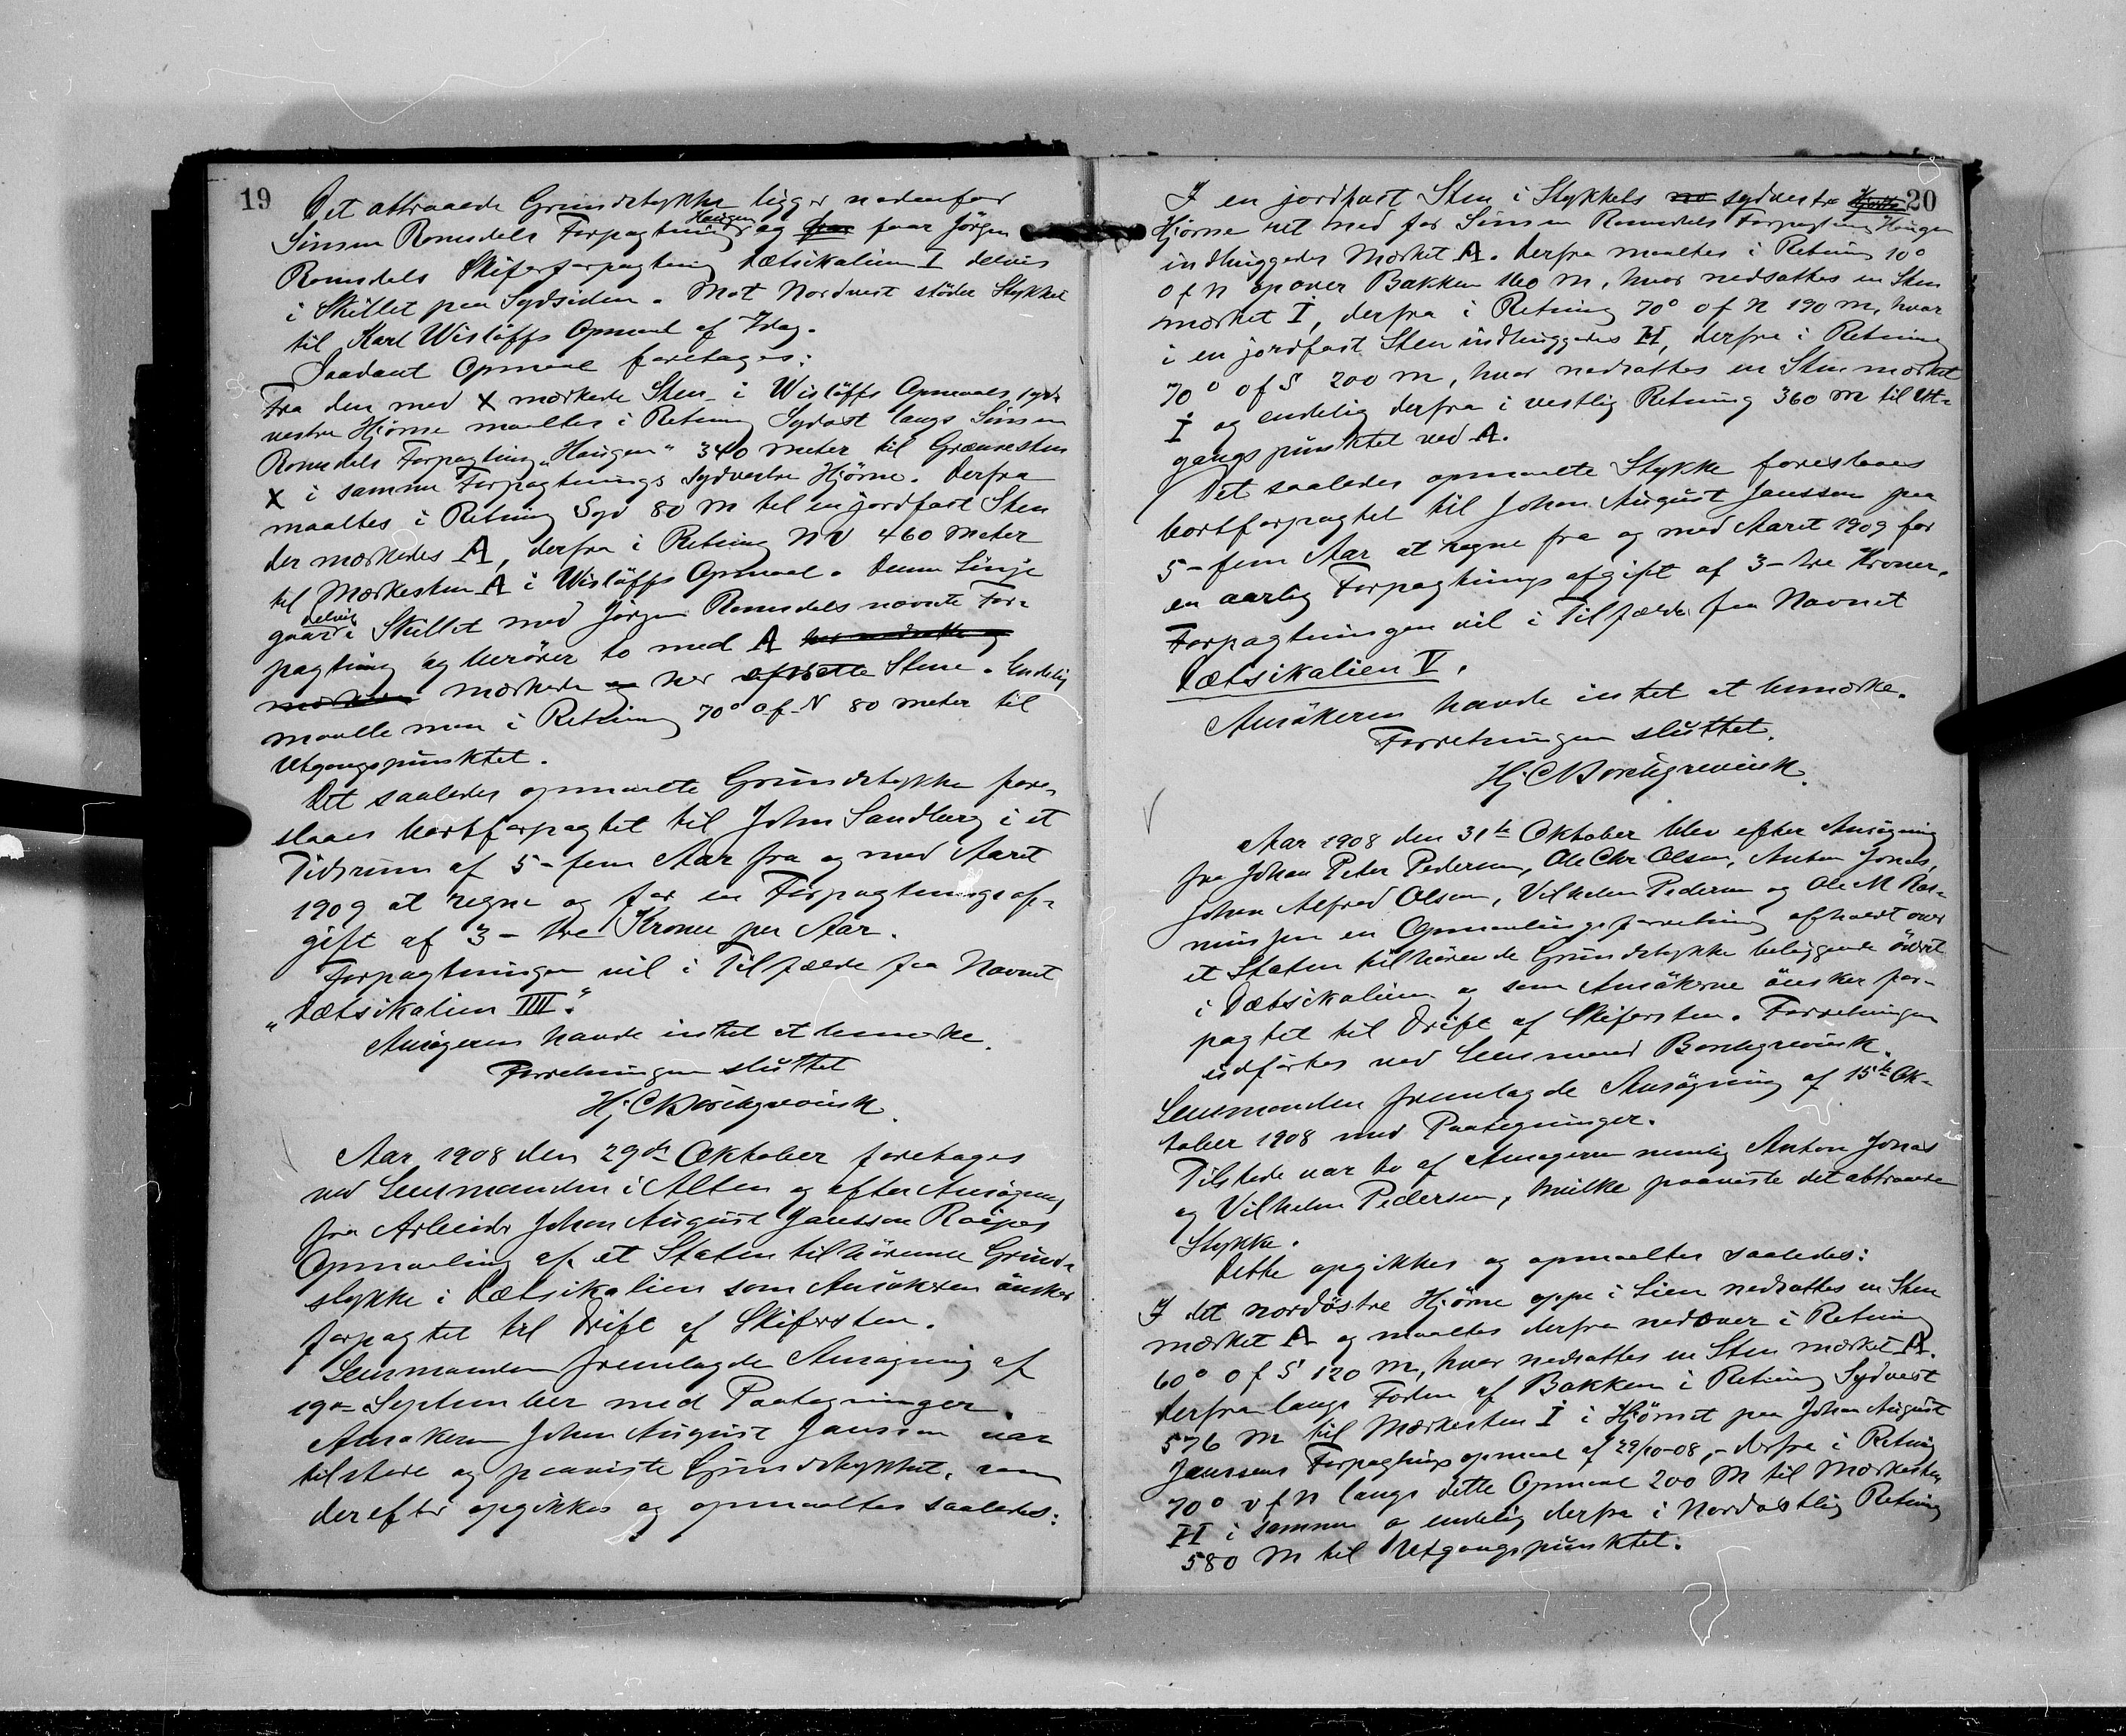 19
Det attraaede Grundstykke ligger nedenfor
Simen Romsdals Forpagtning Haugen og faar Jörgen
Romsdals Skiferforpagtning Dætsikalien I delvis
i Skillet paa Sydsiden. Mot Nordvest stöder Stykket
til Karl Wislöffs Opmaal af Idag.
Saadant Opmaal foretages:
Fra den med X mærkede Sten i Wislöffs Opmaals syd-
vestre Hjörne maaltes i Retning Sydost langs Simen
Romsdals Forpagtning „Haugen“ 340 meter til Grænsesten
X i samme Forpagtnings Sydvestre Hjörne. Derfra
maaltes i Retning Syd 80 m til en jordfast Sten
der mærkedes A, derfra i Retning NV 460 meter
til Mærkesten A i Wislöffs Opmaal. Denne Linje
gaar delvis i Skillet med Jörgen Romsdals nævnte For-
pagtning og berörer to med A
mærkede her Stene. Endelig
maalte man i Retning 70° O f N 80 meter til
Utgangspunktet.
Det saaledes opmaalte Grundstykke fore-
slaaes bortforpagtet til John Sandberg i et
Tidsrum af 5-fem Aar fra og med Aaret
1909 at regne og for en Forpagtningsaf-
gift af 3-tre Kroner per Aar.
Forpagtningen vil i Tilfælde faa Navnet
„Dætsikalien IIII.“
Ansögeren havde intet at bemærke.
Forretningen sluttet
Hj C Borchgrevinck.
Aar 1908 den 29de Oktober foretages
ved Lensmanden i Alten og efter Ansögning
fra Arbeider Johan August Janssen Raipas
Opmaaling af et Staten tilhörende Grund-
stykke i Dætsikalien som Ansökeren önsker
forpagtet til Drift af Skifersten.
Lensmanden fremlagde Ansögning af
19de September med Paategninger.
Ansökeren Johan August Janssen var
tilstede og paaviste Grundstykket, som
derefter opgikkes og opmaaltes saaledes:
20
I en jordfast Sten i Stykkets sydvestre
Hjörne ret ned for Simen Romsdals Forpagtning Haugen
indhuggedes Mærket A. Derfra maaltes i Retning 10°
O f N opover Bakken 160 m, hvor nedsattes en Sten
mærket I, derfra i Retning 70° O f N 190 m, hvor
i en jordfast Sten indhuggedes II, derfra i Retning
70° O f S 200 m, hvor nedsattes en Sten mærket
I og endelig derfra i vestlig Retning 360 m til Ut-
gangspunktet ved A.
Det saaledes opmaalte Stykke foreslaaes
bortforpagtet til Johan August Janssen paa
5-fem Aar at regne fra og med Aaret 1909 for
en aarlig Forpagtningsafgift af 3-tre Kroner.
Forpagtningen vil i Tilfælde faa Navnet
Dætsikalien V.
Ansökeren havde intet at bemærke.
Forretningen sluttet.
Hj C Borchgrevinck.
Aar 1908 den 31te Oktober blev efter Ansögning
fra Johan Peter Pedersen, Ole Chr Olsen, Anton Jonas,
Johan Alfred Olsen, Vilhelm Pedersen og Ole M Ras-
mussen en Opmaalingsforretning afholdt over
et Staten tilhörende Grundstykke beliggende överst
i Dætsikalien og som Ansökerne önsker for-
pagtet til Drift af Skifersten. Forretningen
udförtes ved Lensmand Borchgrevinck.
Lensmanden fremlagde Ansögning af 15de Ok-
tober 1908 med Paategninger.
Tilstede var to af Ansögerne nemlig Anton Jonas
og Vilhelm Pedersen, hvilke paaviste det attraaede
Stykke.
Dette opgikkes og opmaaltes saaledes:
I det nordöstre Hjörne oppe i Lien nedsattes en Sten
mærket A og maaltes derfra nedover i Retning
60° O f S 120 m, hvor nedsattes en Sten mærket A.
Derfra langs Foden af Bakken i Retning Sydvest
576 m til Mærkesten I i Hjörnet paa Johan August
Janssens Forpagtningsopmaal af 29/10-08, - derfra i Retning
70° V f N langs dette Opmaal 200 m til Mærkesten
II i samme o endelig derfra i Nordostlig Retning
580 m til Utgangspunktet.